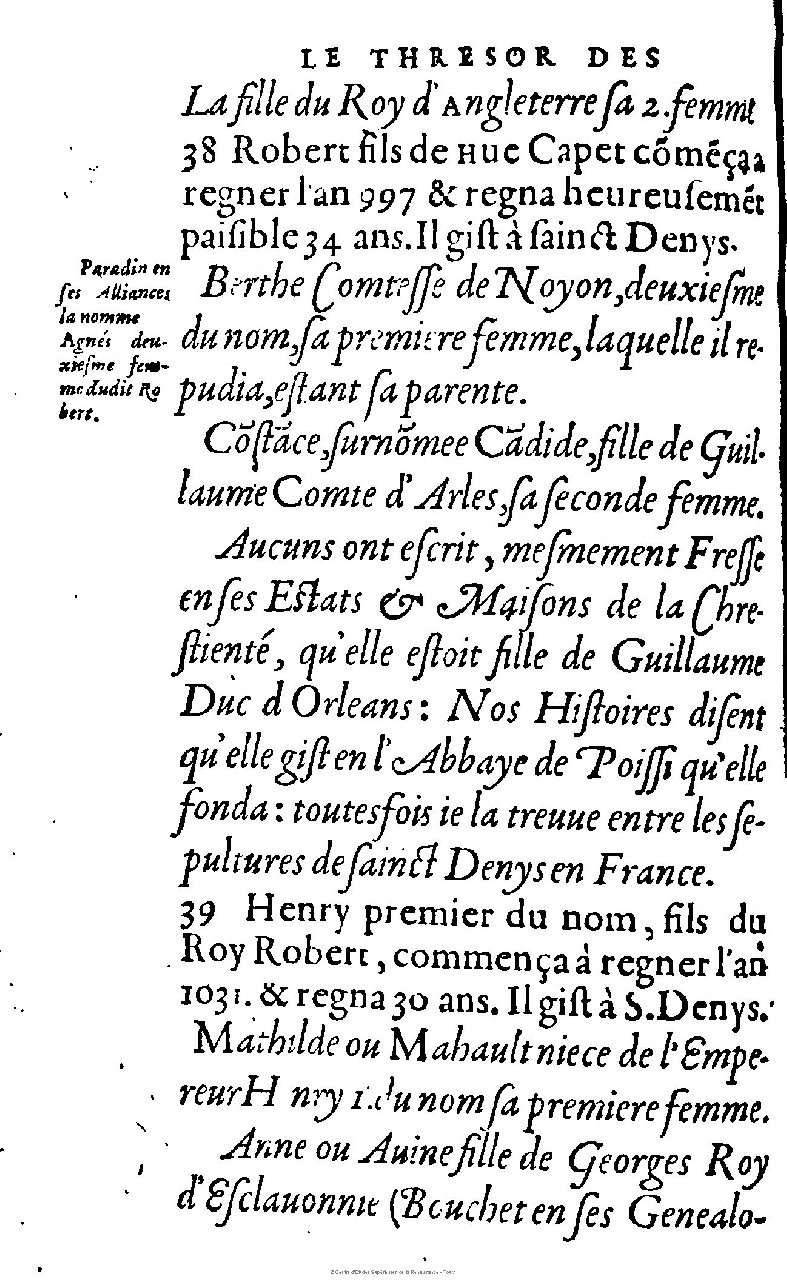 LE THRESOR DES
La fille du Roy d'Angleterre sa 2. femme
38 Robert fils de Hue Capet cõmẽça a
regner l'an 997 & regna heureusemẽt
paisible 34 ans. Il gist à sainct Denys.
Paradin en
ses Alliances
la nomme
Agnés deu-
xiesme fem-
me dudit Ro
bert.
Berthe Comtesse de Noyon, deuxiesme
du nom, sa premiere femme, laquelle il re-
pudia, estant sa parente.
Cõstãce, surnõmee Cãdide, fille de Guil-
laume Comte d'Arles, sa seconde femme.
Aucuns ont escrit, mesmement Fresse
en ses Estats & Maisons de la Chre-
stienté, qu'elle estoit fille de Guillaume
Duc d Orleans: Nos Histoires disent
qu'elle gist en l'Abbaye de Poissi qu'elle
fonda: toutesfois ie la treuue entre les se-
pultures de sainct Denys en France.
39 Henry premier du nom, fils du
Roy Robert, commença à regner l'an
1031. & regna 30 ans. Il gist à S. Denys.
Mathilde ou Mahault niece de l'Empe-
reur H nry 1. du nom sa premiere femme.
Anne ou Auine fille de Georges Roy
d'Esclauonnie (Bouchet en ses Genealo-